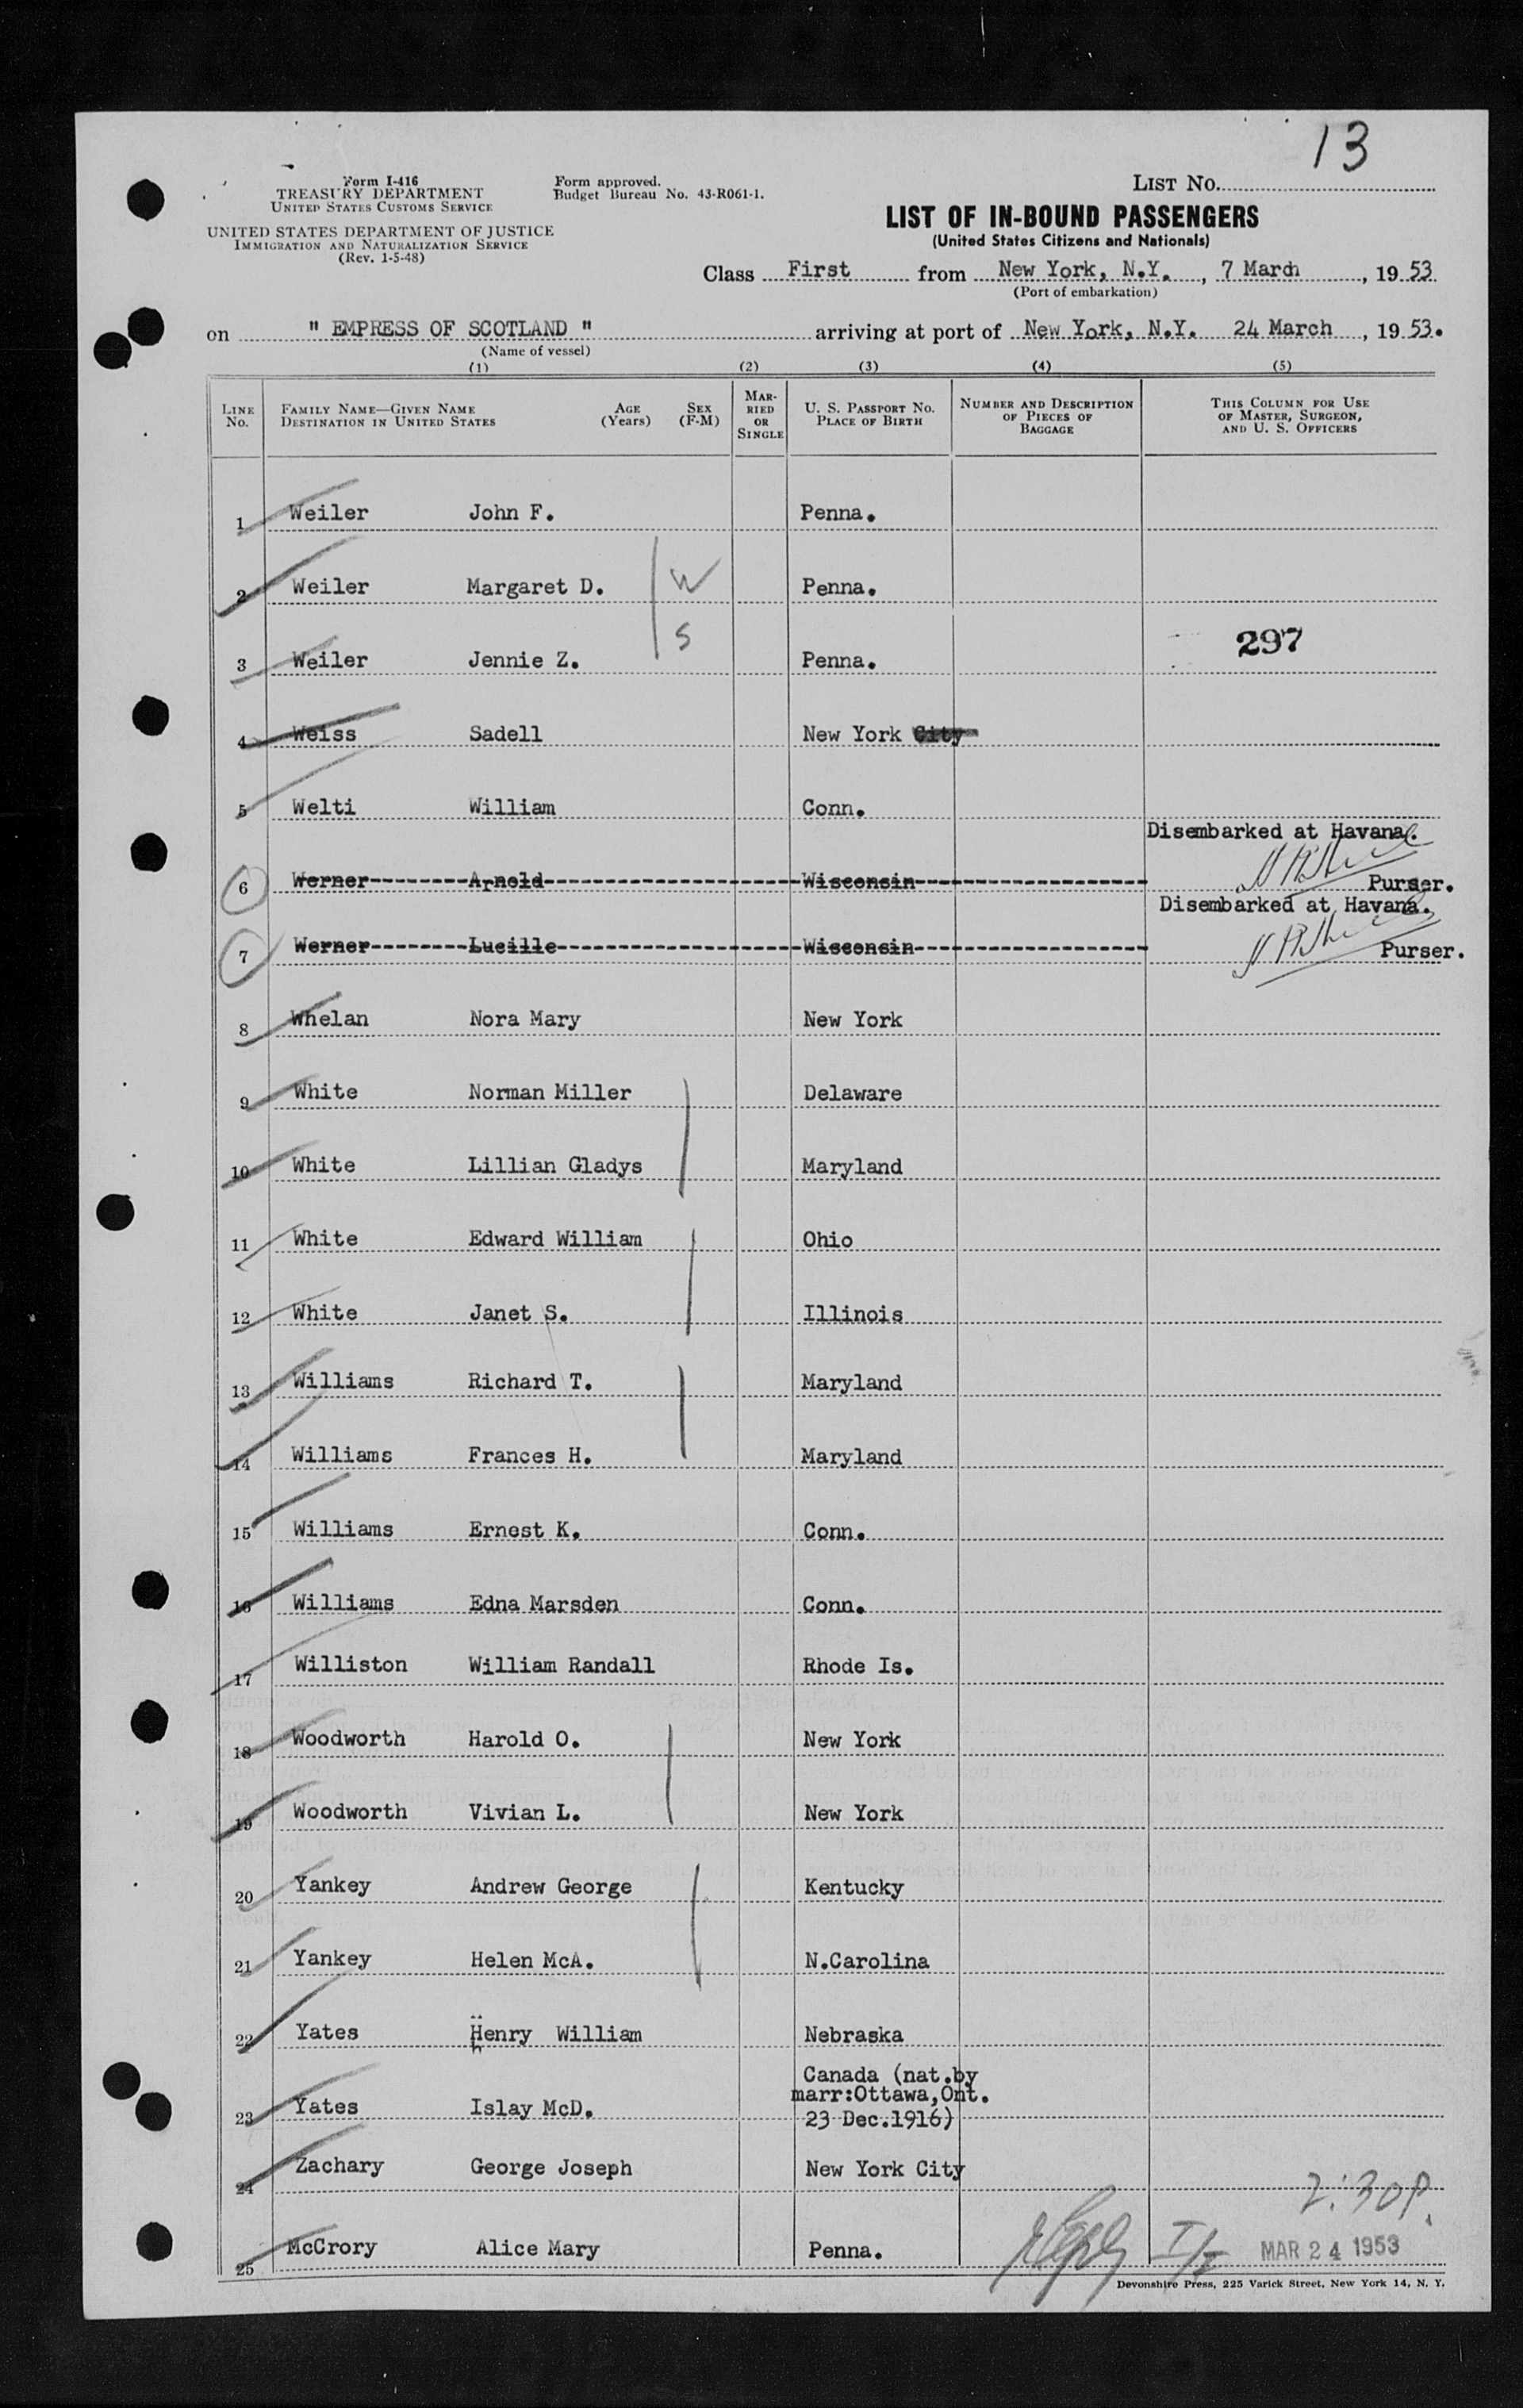 13
Form I-416
TREASURY DEPARTMENT
UNITED STATES CUSTOMS SERVICE
UNITED STATES DEPARTMENT OF JUSTICE
IMMIGRATION AND NATURALIZATION SERVICE
(Rev. 1-5-48)
Form approved.
Budget Bureau No. 43-R061-1.
LIST NO.
LIST OF IN-BOUND PASSENGERS
(United States Citizens and Nationals)
Class First from New York, N.Y., 7 March, 19 53
(Port of embarkation)
on " EMPRESS OF SCOTLAND " arriving at port of New York, N.Y. 24 March, 19 53.
(Name of vessel)
(1) (2) (3) (4) (5)
LINE NO. FAMILY NAME—GIVEN NAME DESTINATION IN UNITED STATES AGE (Years) SEX (F-M) MARRIED OR SINGLE U. S. PASSPORT NO. PLACE OF BIRTH NUMBER AND DESCRIPTION OF PIECES OF BAGGAGE THIS COLUMN FOR USE OF MASTER, SURGEON, AND U. S. OFFICERS
1 Weiler John F. Penna.
2 Weiler Margaret D. W Penna.
S
297
3 Weiler Jennie Z. Penna.
4 Weiss Sadell New York City
5 Welti William Conn.
Disembarked at Havana.
6 Werner Arnold Wisconsin Purser.
Disembarked at Havana.
7 Werner Lucille Wisconsin Purser.
8 Whelan Nora Mary New York
9 White Norman Miller Delaware
10 White Lillian Gladys Maryland
11 White Edward William Ohio
12 White Janet S. Illinois
13 Williams Richard T. Maryland
14 Williams Frances H. Maryland
15 Williams Ernest K. Conn.
16 Williams Edna Marsden Conn.
17 Williston William Randall Rhode Is.
18 Woodworth Harold O. New York
19 Woodworth Vivian L. New York
20 Yankey Andrew George Kentucky
21 Yankey Helen McA. N.Carolina
22 Yates Henry William Nebraska
Canada (nat.by
marr:Ottawa,Ont.
23 Yates Islay McD. 23 Dec.1916)
24 Zachary George Joseph New York City
2:30P.
25 McCrory Alice Mary Penna. MAR 24 1953
Devonshire Press, 225 Varick Street, New York 14, N. Y.